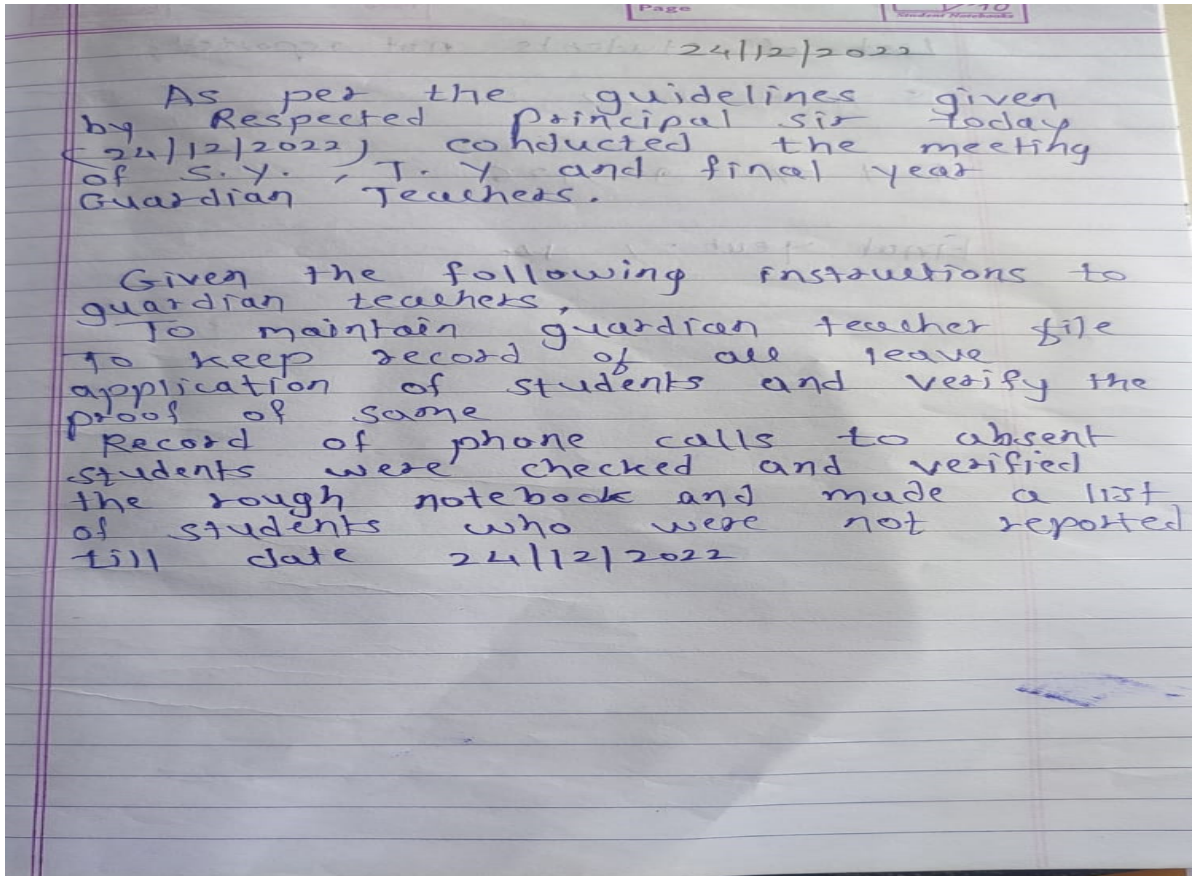 Page
Student Notebooks
24/12/2022
As per the guidelines given
by Respected Principal sir today
(24/12/2022) conducted the meeting
of S.Y., T.Y and final year
Guardian Teachers.
Given the following instructions to
guardian teachers,
To maintain guardian teacher file
To keep record of all leave
application of students and verify the
proof of same
Record of phone calls to absent
students were checked and verified
the rough notebook and made a list
of students who were not reported
till date 24/12/2022